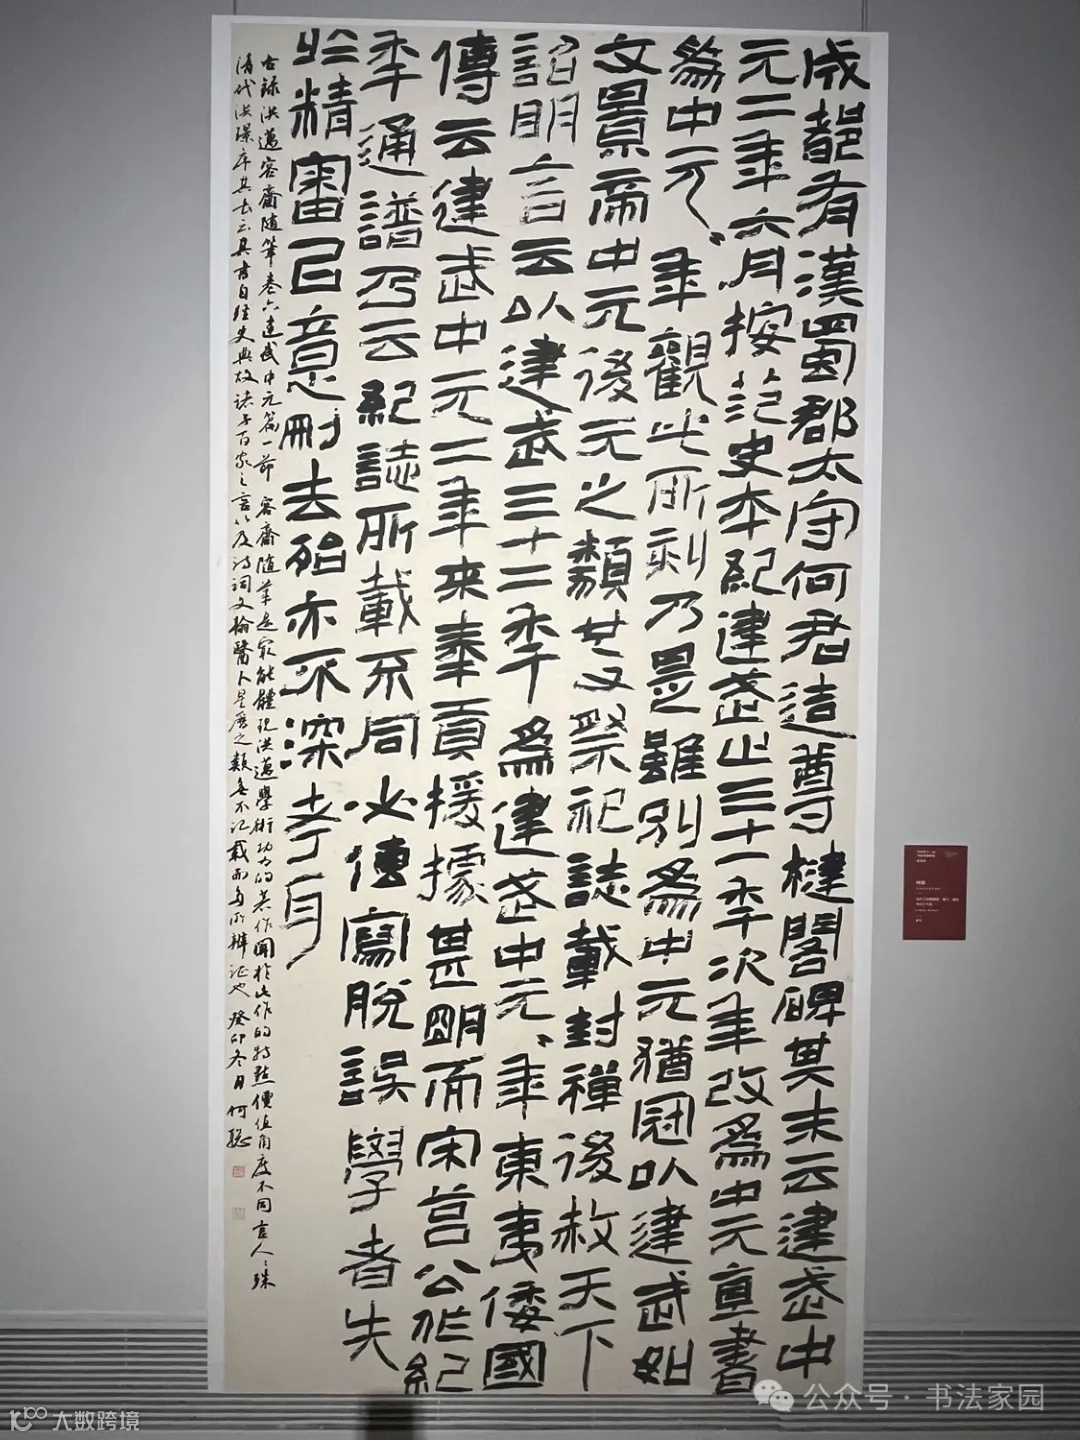 成都有漢蜀郡太守何君造尊楗閣碑其末云建武中
元二年六月按范史本紀建武止三十一年次年改為中元直書
為中元〻年觀此所刻乃是雖別為中元猶冠以建武如
文景帝中元後元之類也又祭祀誌載封禪後赦天下
詔明言云以建武三十二年為建武中元〻年東夷倭國
傳云建武中元二年來奉貢援據甚明而宋莒公作紀
年通譜乃云紀誌所載不同必傳寫脫誤學者失
於精審以意刪去殆亦不深考耳
右錄洪邁容齋隨筆卷六建武中元篇一節 容齋隨筆是最能體現洪邁學術功力的著作關於此作的特點價值角度不同言人〻殊
清代洪璟序其書云其書自經史典故諸子百家之言以及詩詞文翰醫卜星曆之類無不記載而多所辯証也 癸卯冬日 何聰
公众号 · 书法家园
大数跨境